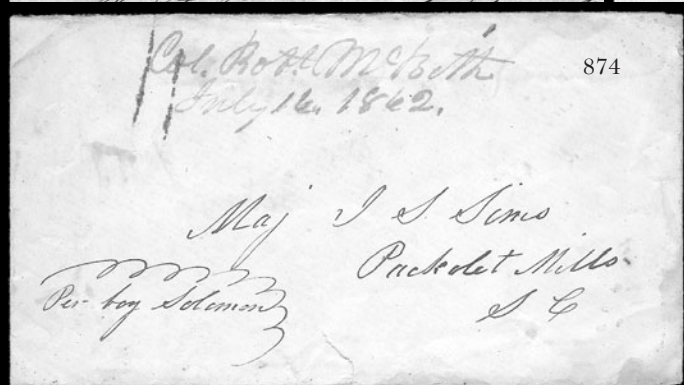 Col. Robt. McBeth
874
July 16. 1862.
Maj J S Sims
Packolet Mills
S C
Per boy Solomon